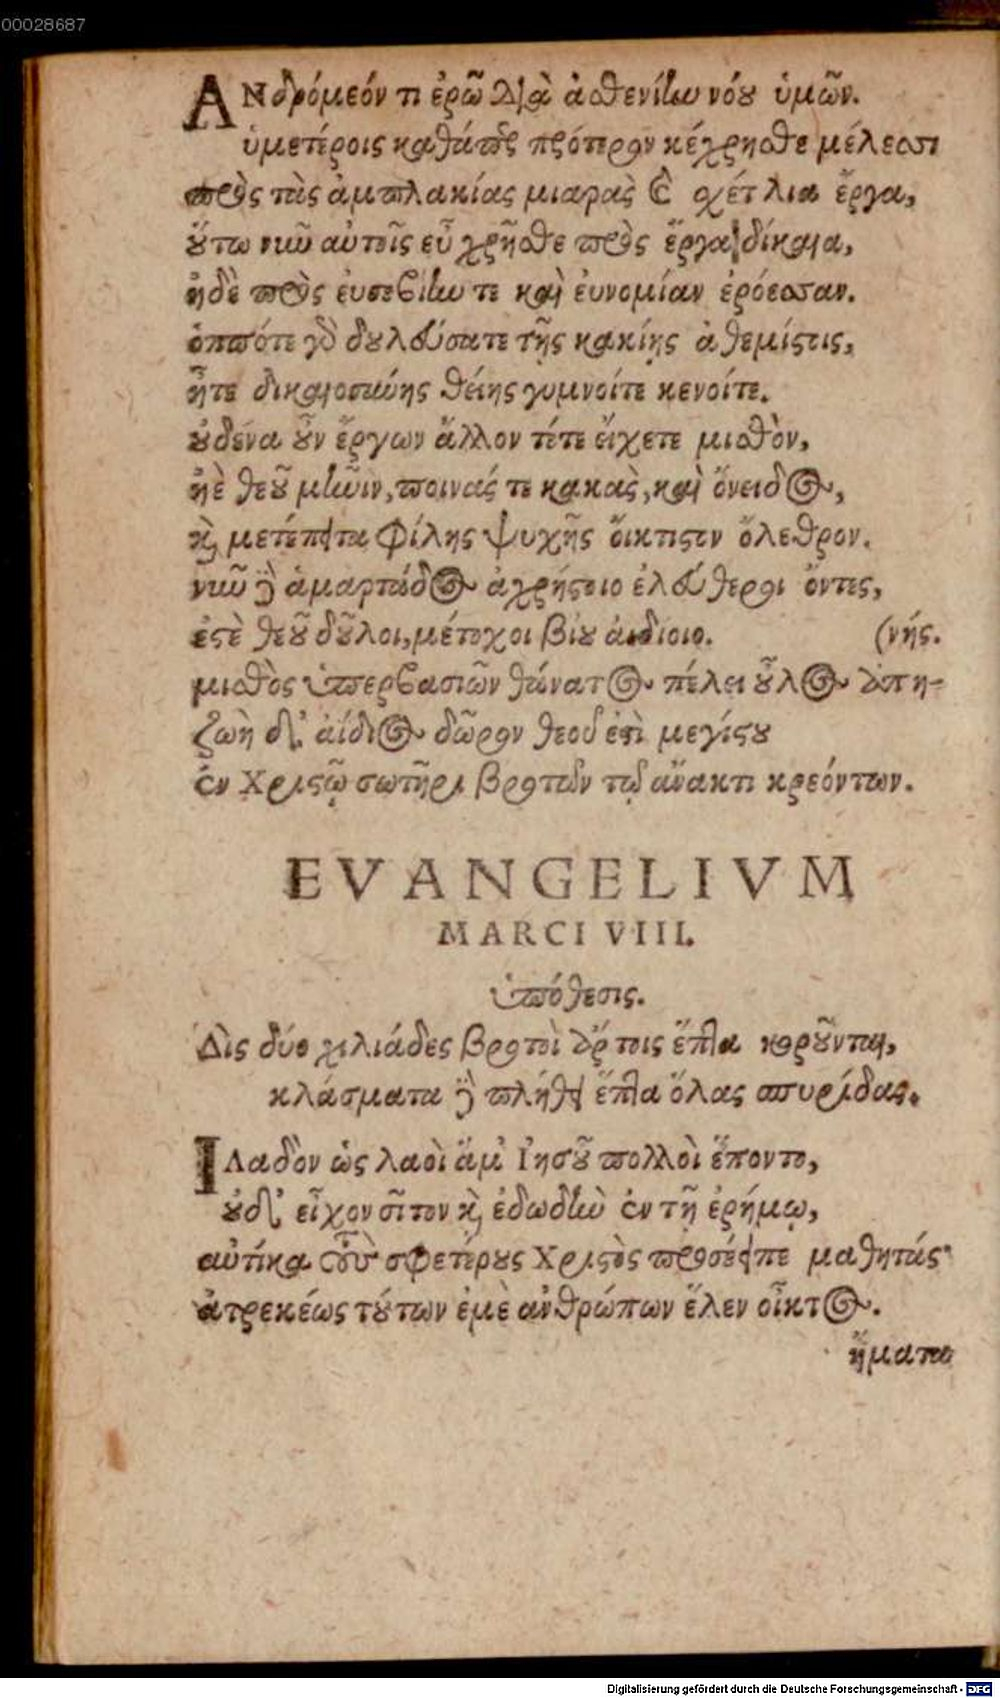 00028687
ΑΝδρόμεόν τι ἐρῶ διὰ ἀσθενίην νόου ὑμῶν.
ὑμετέροις καθάπερ πρότερον κέχρησθε μέλεσσι
πρὸς τὰς ἀμπλακίας μιαρὰς καὶ σχέτλια ἔργα,
οὕτω νῦν αὐτοῖς εὖ χρῆσθε πρὸς ἔργα δίκαια,
ἠδὲ πρὸς ἐυσεβίην τε καὶ ἐυνομίαν ἐρόεσσαν.
ὁππότε γὸ δουλεύσατε τῆς κακίης ἀθεμίστις,
ἦτε δικαιοσύνης θείης γυμνοίτε κενοίτε.
οὐδένα οὖν ἔργων ἄλλον τότε εἴχετε μισθὸν,
ἠὲ θεοῦ μῆνιν, ποινάς τε κακὰς, καὶ ὄνειδος,
καὶ μετέπειτα φίλης ψυχῆς οἴκτιστον ὄλεθρον.
νῦν δὲ ἁμαρτάδος ἀχρήστοιο ἐλεύθεροι ὄντες,
ἐστὲ θεοῦ δοῦλοι, μέτοχοι βίου ἀϊδίοιο. (νής.
μισθὸς ὑπερβασιῶν θάνατος πέλει οὖλος ἀπη-
ζωὴ δ' ἀίδιος δῶρον θεοῦ ἐστὶ μεγίστου
ἐν Χριστῷ σωτῆρι βροτῶν τῷ ἄνακτι κρεόντων.
EVANGELIVM
MARCI VIII.
ὑπόθεσις.
Δὶς δύο χιλιάδες βροτοὶ ἄρτοις ἕπτα κοροῦνται,
κλάσματα δὲ πλήθει ἕπτα ὅλας σπυρίδας.
ΙΛαδὸν ὡς λαοὶ ἅμ' Ἰησοῦ πολλοὶ ἕποντο,
οὐδ' εἶχον σῖτον καὶ ἐδωδὴν ἐν τῇ ἐρήμῳ,
αὐτίκα τοὺς σφετέρους Χριστὸς προσέειπε μαθητάς·
ἀτρεκέως τούτων ἐμὲ ἀνθρώπων ἕλεν οἶκτος.
ἤματα
Digitalisierung gefördert durch die Deutsche Forschungsgemeinschaft - DFG